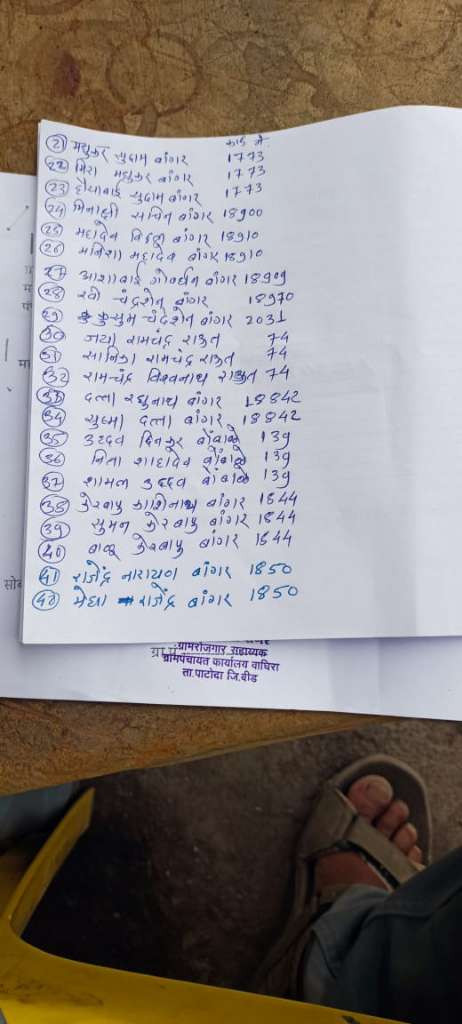 कार्ड नं.
(21) मधुकर सुदाम बांगर 1773
(22) मिरा मधुकर बांगर 1773
(23) सुदाम बांगर 1773
(24) मिनाक्षी सचिन बांगर 18900
(25) महादेव विठ्ठल बांगर 18910
(26) मनिशा महादेव बांगर 18910
(27) आशाबाई गोवर्धन बांगर 18909
(28) रवी चंद्रशेन बांगर 18970
(29) कुसुम चंद्रशेन बांगर 2031
(30) जया रामचंद्र राऊत 74
(31) सानिका रामचंद्र राऊत 74
(32) रामचंद्र विश्वनाथ राऊत 74
(33) दत्ता रघुनाथ बांगर 18842
(34) सुष्मा दत्ता बांगर 18842
(35) उददव दिनकर 139
(36) शहादेव 139
(37) शामल उददव 139
(38) केरबापु काशिनाथ बांगर 1844
(39) सुमन केरबापु बांगर 1844
(40) बाळू केरबापु बांगर 1844
(41) राजेंद्र नारायण बांगर 1850
(42) मेघा राजेंद्र बांगर 1850
ग्रामरोजगार सहाय्यक
ग्रामपंचायत कार्यालय वाघिरा
ता.पाटोदा जि.बीड